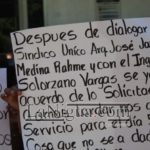 Despues de dialogar
Sindico Unico Arq. José Ja
Medina Rahme y con el Ing
Solorzano Vargas se y
acuerdo de lo Solicita
Servicio para el dia
Cosa que no se a da